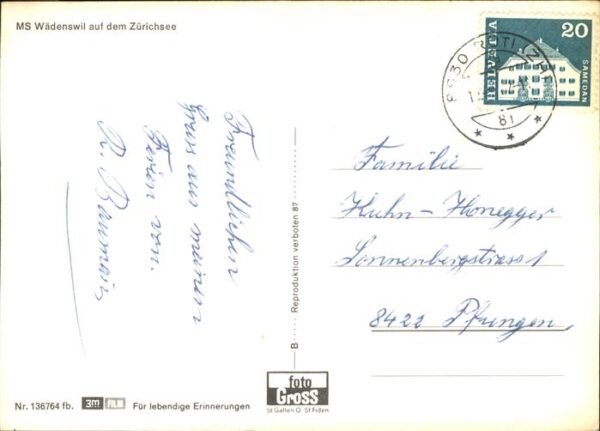 MS Wädenswil auf dem Zürichsee
HELVETIA
20
SAMEDAN
8630 RÜTI ZH
81
Freundlichen
Gruss aus meinen
Ferien von.
R.
Familie
Kuhn-Honegger
Sonnenbergstrass 1
8422 Pfungen,
B
Reproduktion verboten 87
foto
GROSS
St Gallen O St Fiden
Nr. 136764 fb.
3M
FILM
Für lebendige Erinnerungen